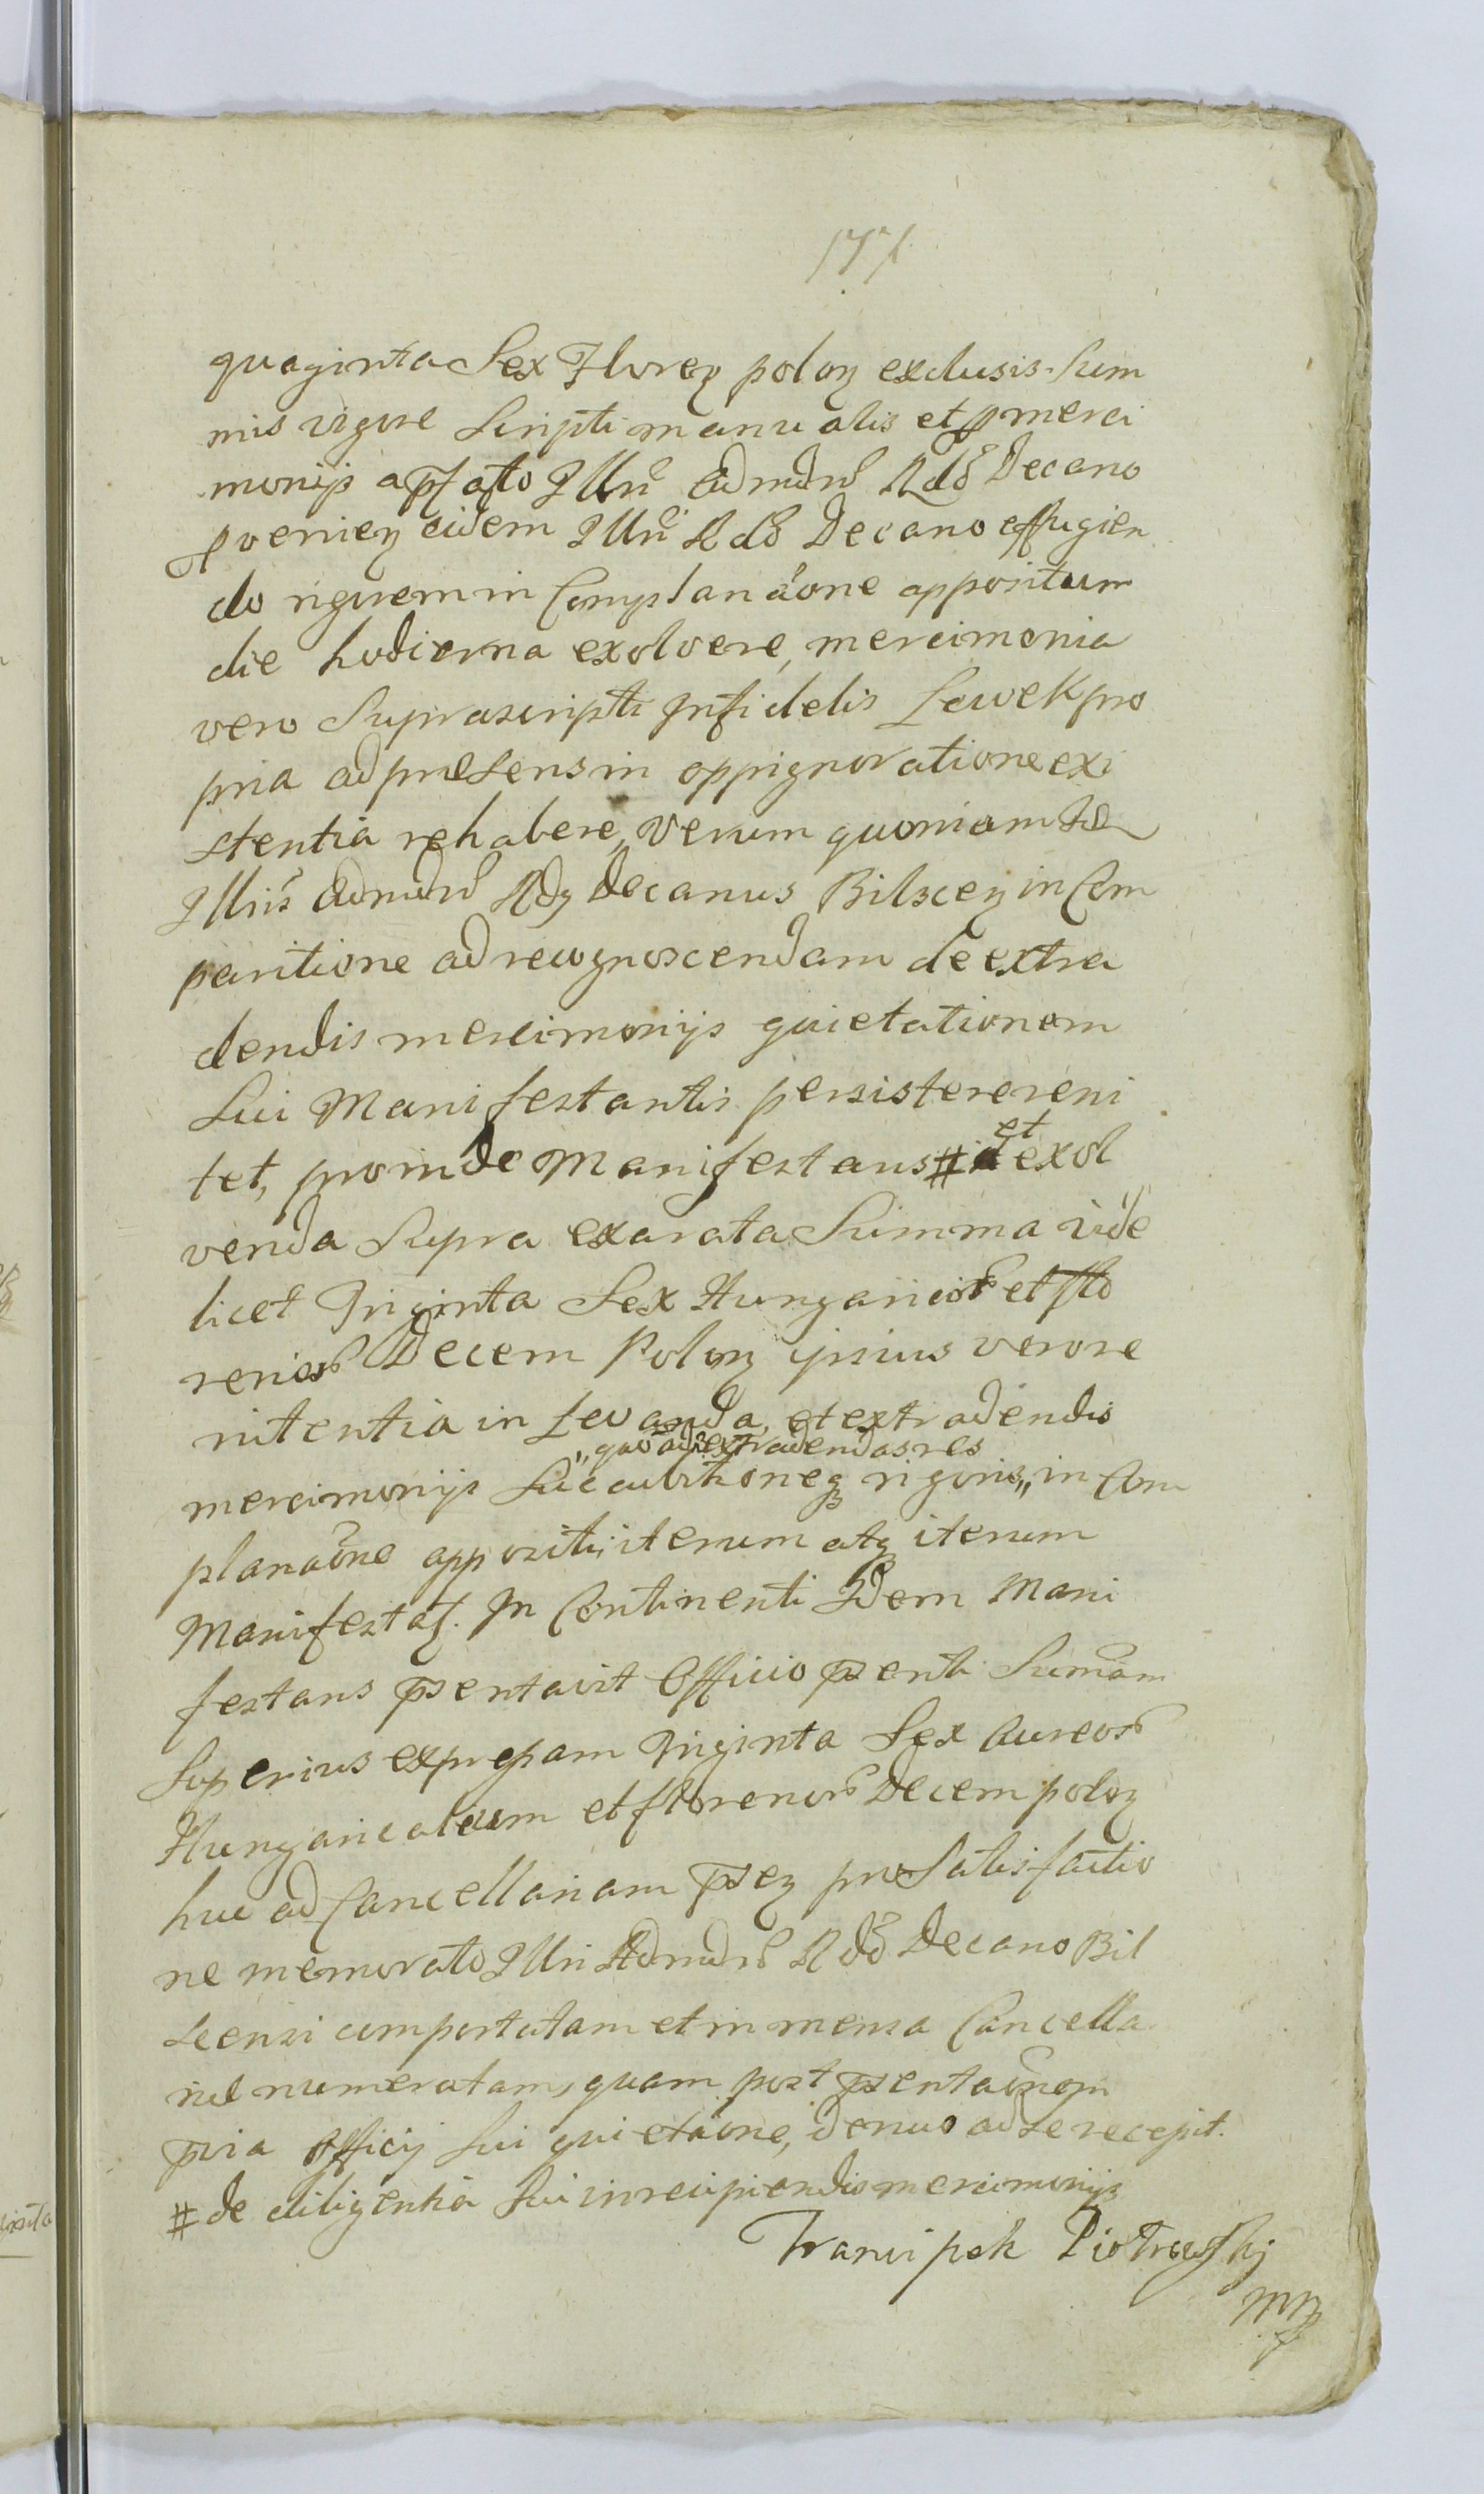 177
quaginta Sex Floreŋ poloŋ exclusis Sum
mis vigore Scripti manualis et p merci
monijs a pfato Illri Admdm Rdo Decano
pvenieŋ eidem Illri Rdo Decano effugien
do rigorem in Complanaone appositum
die hodierna exolvere, mercimonia
vero Suprascripti Infidelis Lewek pro
pria ad præsens in oppignoratione exi
stentia rehabere, Verum quoniam
Illris Admdm Rdg Decanus Bilsceŋ in Com
paritione ad recognoscendam de extra
dendis mercimonijs quietationem
Sui Manifestantis persistere reni
tet, proinde Manifestans # et exol
venda Supra exarata Summa vide
licet Triginta Sex Hungaricor et flo
renior Decem Poloŋ ipsius vero re
nitentia in Levanda, et extradendis
„ quo ad extradendas res
mercimonijs Succubitioneq rigoris „ in Com
planaone appositi, iterum atq iterum
Manifestat. In Continenti Idem Mani
festans psentavit Officio psenti Summam
Superius expressam Triginta Sex Aureor
Hungaricalium et florenor Decem poloŋ
huc ad Cancellariam pseŋ pro Satisfactio
ne memorato Illri Admdm Rdo Decano Bil
scensi comportatam et in mensa Cancella
riæ numeratam, quam post psentaonem
pvia Officij Sui quietaone, denuo ad se recepit.
# de diligentia Sui in recipiendis mercimonijs
Franciszek Piotrowskj
mp